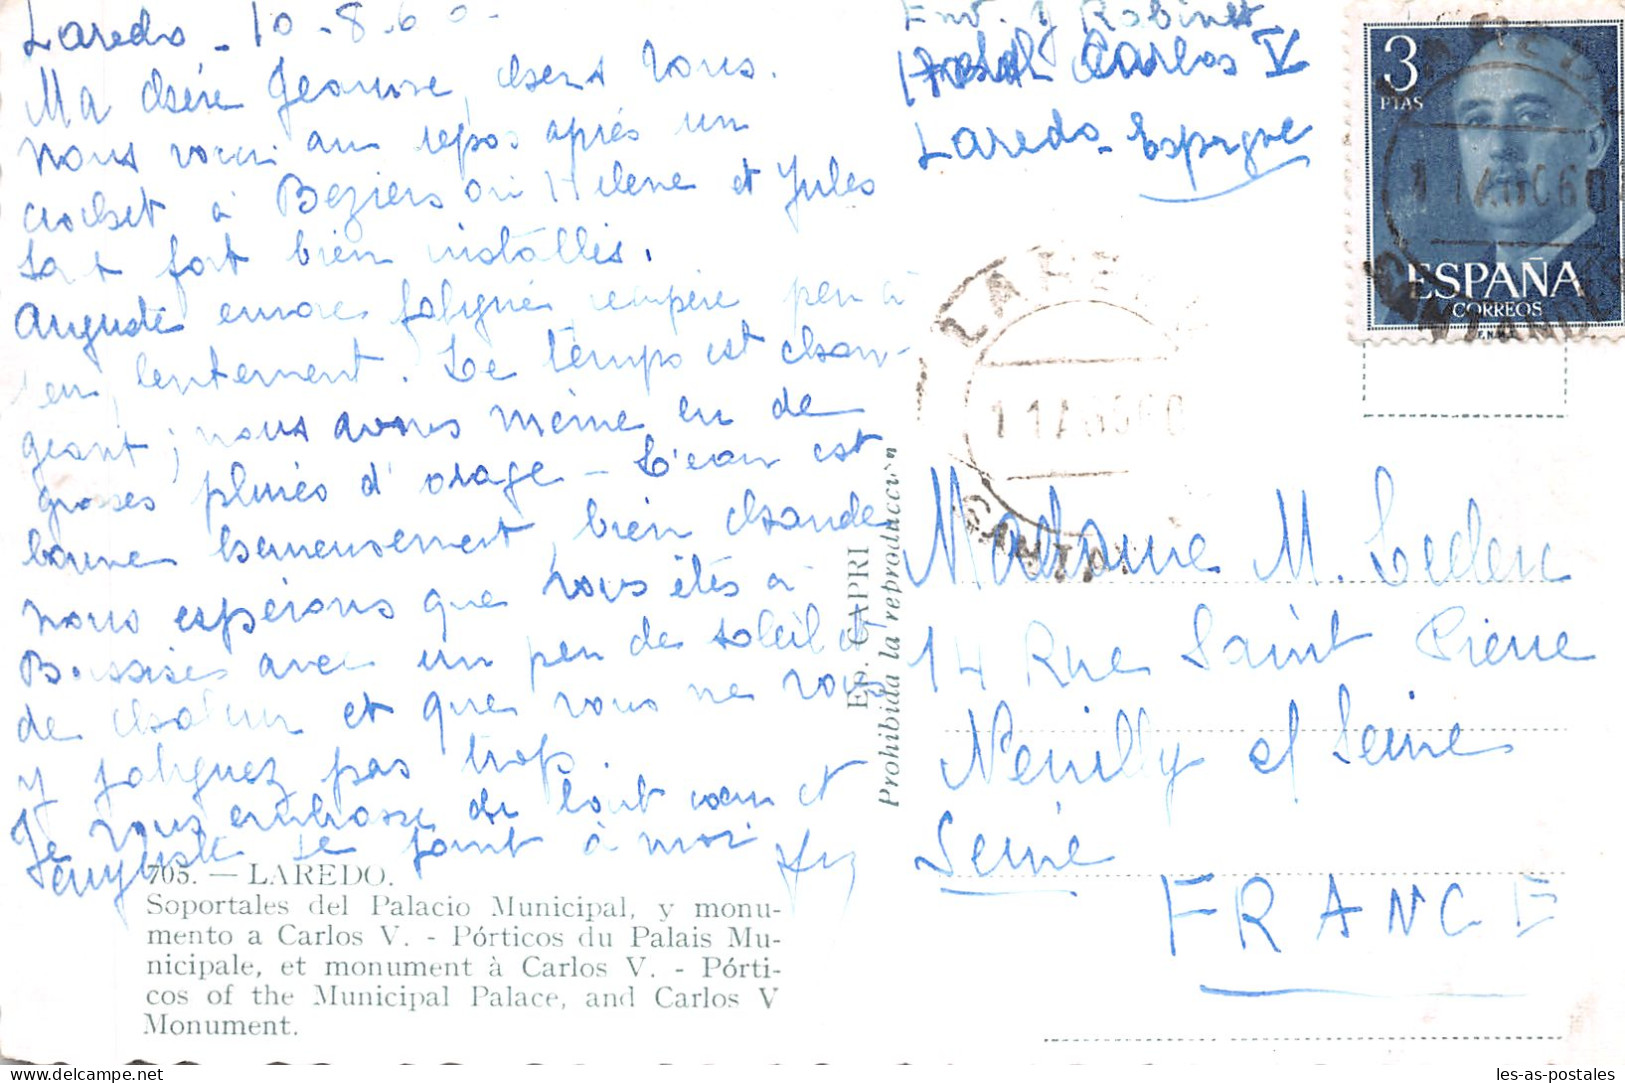 Laredo - 10-8-60
Ma chère Jeanne, chers tous.
nous voici au repos après un
crochet à Beziers où Hélène et Jules
sont fort bien installés.
Auguste encore fatigué récupère peu à
peu lentement. Le temps est chan-
geant ; nous avons même eu de
grosses pluies d'orage - L'eau est
bonne heureusement, bien chaude
nous espérons que vous êtes à
avec un peu de soleil et
de chaleur et que vous ne vous
y fatiguez pas trop.
Je vous embrasse de tout cœur et
Auguste se joint à moi
705. — LAREDO.
Soportales del Palacio Municipal, y monu-
mento a Carlos V. - Pórticos du Palais Mu-
nicipale, et monument à Carlos V. - Pórti-
cos of the Municipal Palace, and Carlos V
Monument.
ED. CAPRI
Prohibida la reproducción
Env. y Robinet
Hotel Carlos V
Laredo - Espagne
3
PTAS
ESPAÑA
CORREOS
F.N.M.T.
LAREDO
11 AGO 60
Madame M. Leclerc
14 Rue Saint Pierre
Neuilly s/ Seine
Seine
FRANCE
les-as-postales.com
les-as-postales